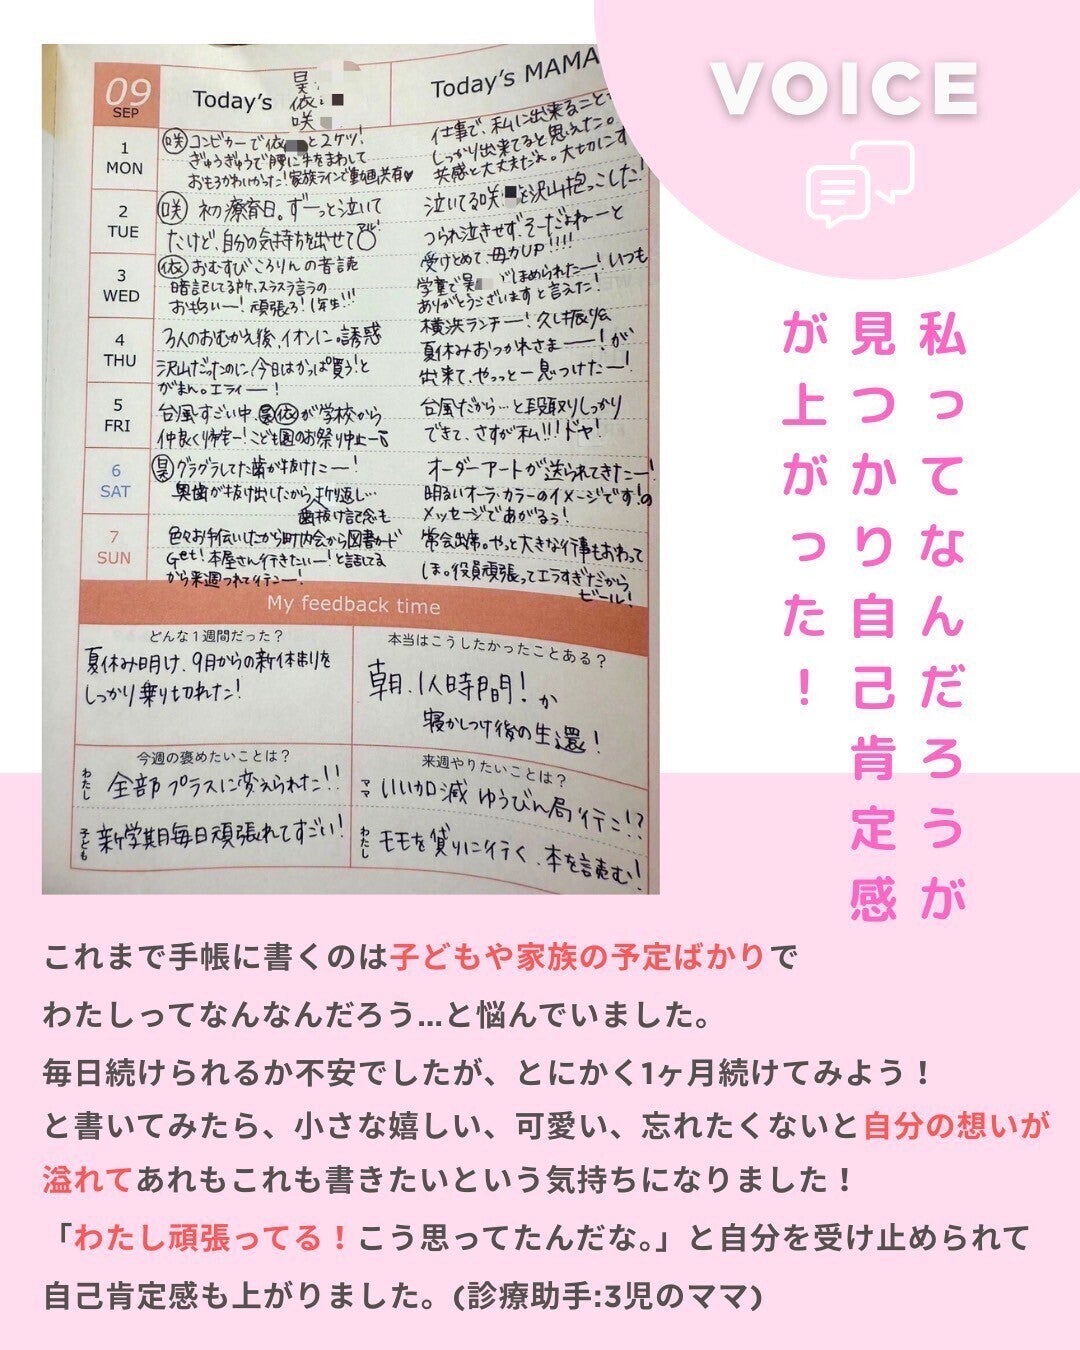 VOICE
私ってなんだろうが
見つかり自己肯定感
が上がった！
09
SEP
Today's
昊
依
咲
Today's MAMA
1
MON
咲 コンビカーで依と2ケツ!
ぎゅうぎゅうで腰に手をまわして
おもろかわいかった!家族ラインで動画共有♥
仕事で、私に出来ること
しっかり出来てると思えた。
共感と大丈夫だよ。大切にす
2
TUE
咲 初療育日。ずーっと泣いて
たけど、自分の気持ちを出せて
泣いてる咲を沢山抱っこした!
つられ泣きせず、そーだよねーと
受けとめて、母力UP!!!!
3
WED
依 おむすびころりんの音読
暗記してるからスラスラ言うの
おもろいー!頑張ろ!1年生!!!
学童で昊がほめられたー!いつも
ありがとうございますと言えた!
4
THU
3人のおむかえ後、イオンに。誘惑
沢山だったのに「今日はかっぱ買う!」と
がまん。エライー!
横浜ランチー!久し振り会
夏休みおつかれさまー!が
出来て、やっっと一息つけたー!
5
FRI
台風すごい中、昊依が学校から
仲良く帰宅ー!こども園のお祭り中止ー
台風だから…と段取りしっかり
できて、さすが私!!!ドヤ!
6
SAT
昊 グラグラしてた歯が抜けたー!
奥歯が抜け出したから折り返し…
歯抜け記念も
オーダーアートが送られてきたー!
明るいオーラ・カラーのイメージです!の
メッセージであがるぅ!
7
SUN
色々お手伝いしたから町内会から図書カード
Get!本屋さん行きたいー!と話してる
から来週つれて行こー!
常会出席。やっと大きな行事もおわって
ほ。役員頑張ってエラすぎだから
ビール!
My feedback time
どんな1週間だった?
夏休み明け、9月からの新体制りを
しっかり乗り切れた!
本当はこうしたかったことある?
朝、1人時間!か
寝かしつけ後の生還!
今週の褒めたいことは?
わたし 全部プラスに変えられた!!
子ども 新学期毎日頑張れてすごい!
来週やりたいことは?
ママ いい加減ゆうびん局行こ!?
わたし モモを借りに行く、本を読む!
これまで手帳に書くのは子どもや家族の予定ばかりで
わたしってなんなんだろう...と悩んでいました。
毎日続けられるか不安でしたが、とにかく1ヶ月続けてみよう！
と書いてみたら、小さな嬉しい、可愛い、忘れたくないと自分の想いが
溢れてあれもこれも書きたいという気持ちになりました！
「わたし頑張ってる！こう思ってたんだな。」と自分を受け止められて
自己肯定感も上がりました。(診療助手:3児のママ)